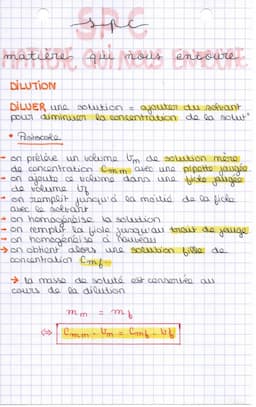 SPC
spc
MATIÈRE QUI NOUS ENTOURE
matière qui nous entoure
DILUTION
DILUER une solution = ajouter du solvant
pour diminuer la concentration de la solut°
• Protocole
→ on prélève un volume Vm de solution mère
de concentration Cmm avec une pipette jaugée
→ on ajoute ce volume dans une fiole jaugée
de volume Vf
→ on remplit jusqu'à la moitié de la fiole
avec le solvant
→ on homogénéise la solution
→ on remplit la fiole jusqu'au trait de jauge
→ on homogénéise à nouveau
→ on obtient alors une solution fille de
concentration Cmf
→ la masse de soluté est conservée au
cours de la dilution
mm = mf
⇔ Cmm · Vm = Cmf · Vf